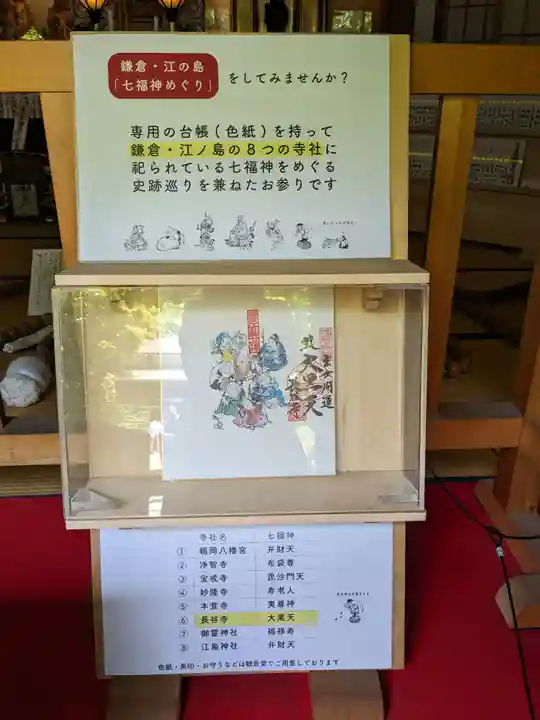 鎌倉・江の島
「七福神めぐり」
をしてみませんか?
専用の台帳(色紙)を持って
鎌倉・江ノ島の8つの寺社に
祀られている七福神をめぐる
史跡巡りを兼ねたお参りです
大黒天
寺社名 七福神
① 鶴岡八幡宮 弁財天
② 浄智寺 布袋尊
③ 宝戒寺 毘沙門天
④ 妙隆寺 寿老人
⑤ 本覚寺 夷尊神
⑥ 長谷寺 大黒天
⑦ 御霊神社 福禄寿
⑧ 江島神社 弁財天
色紙・朱印・お守りなどは観音堂でご用意しております